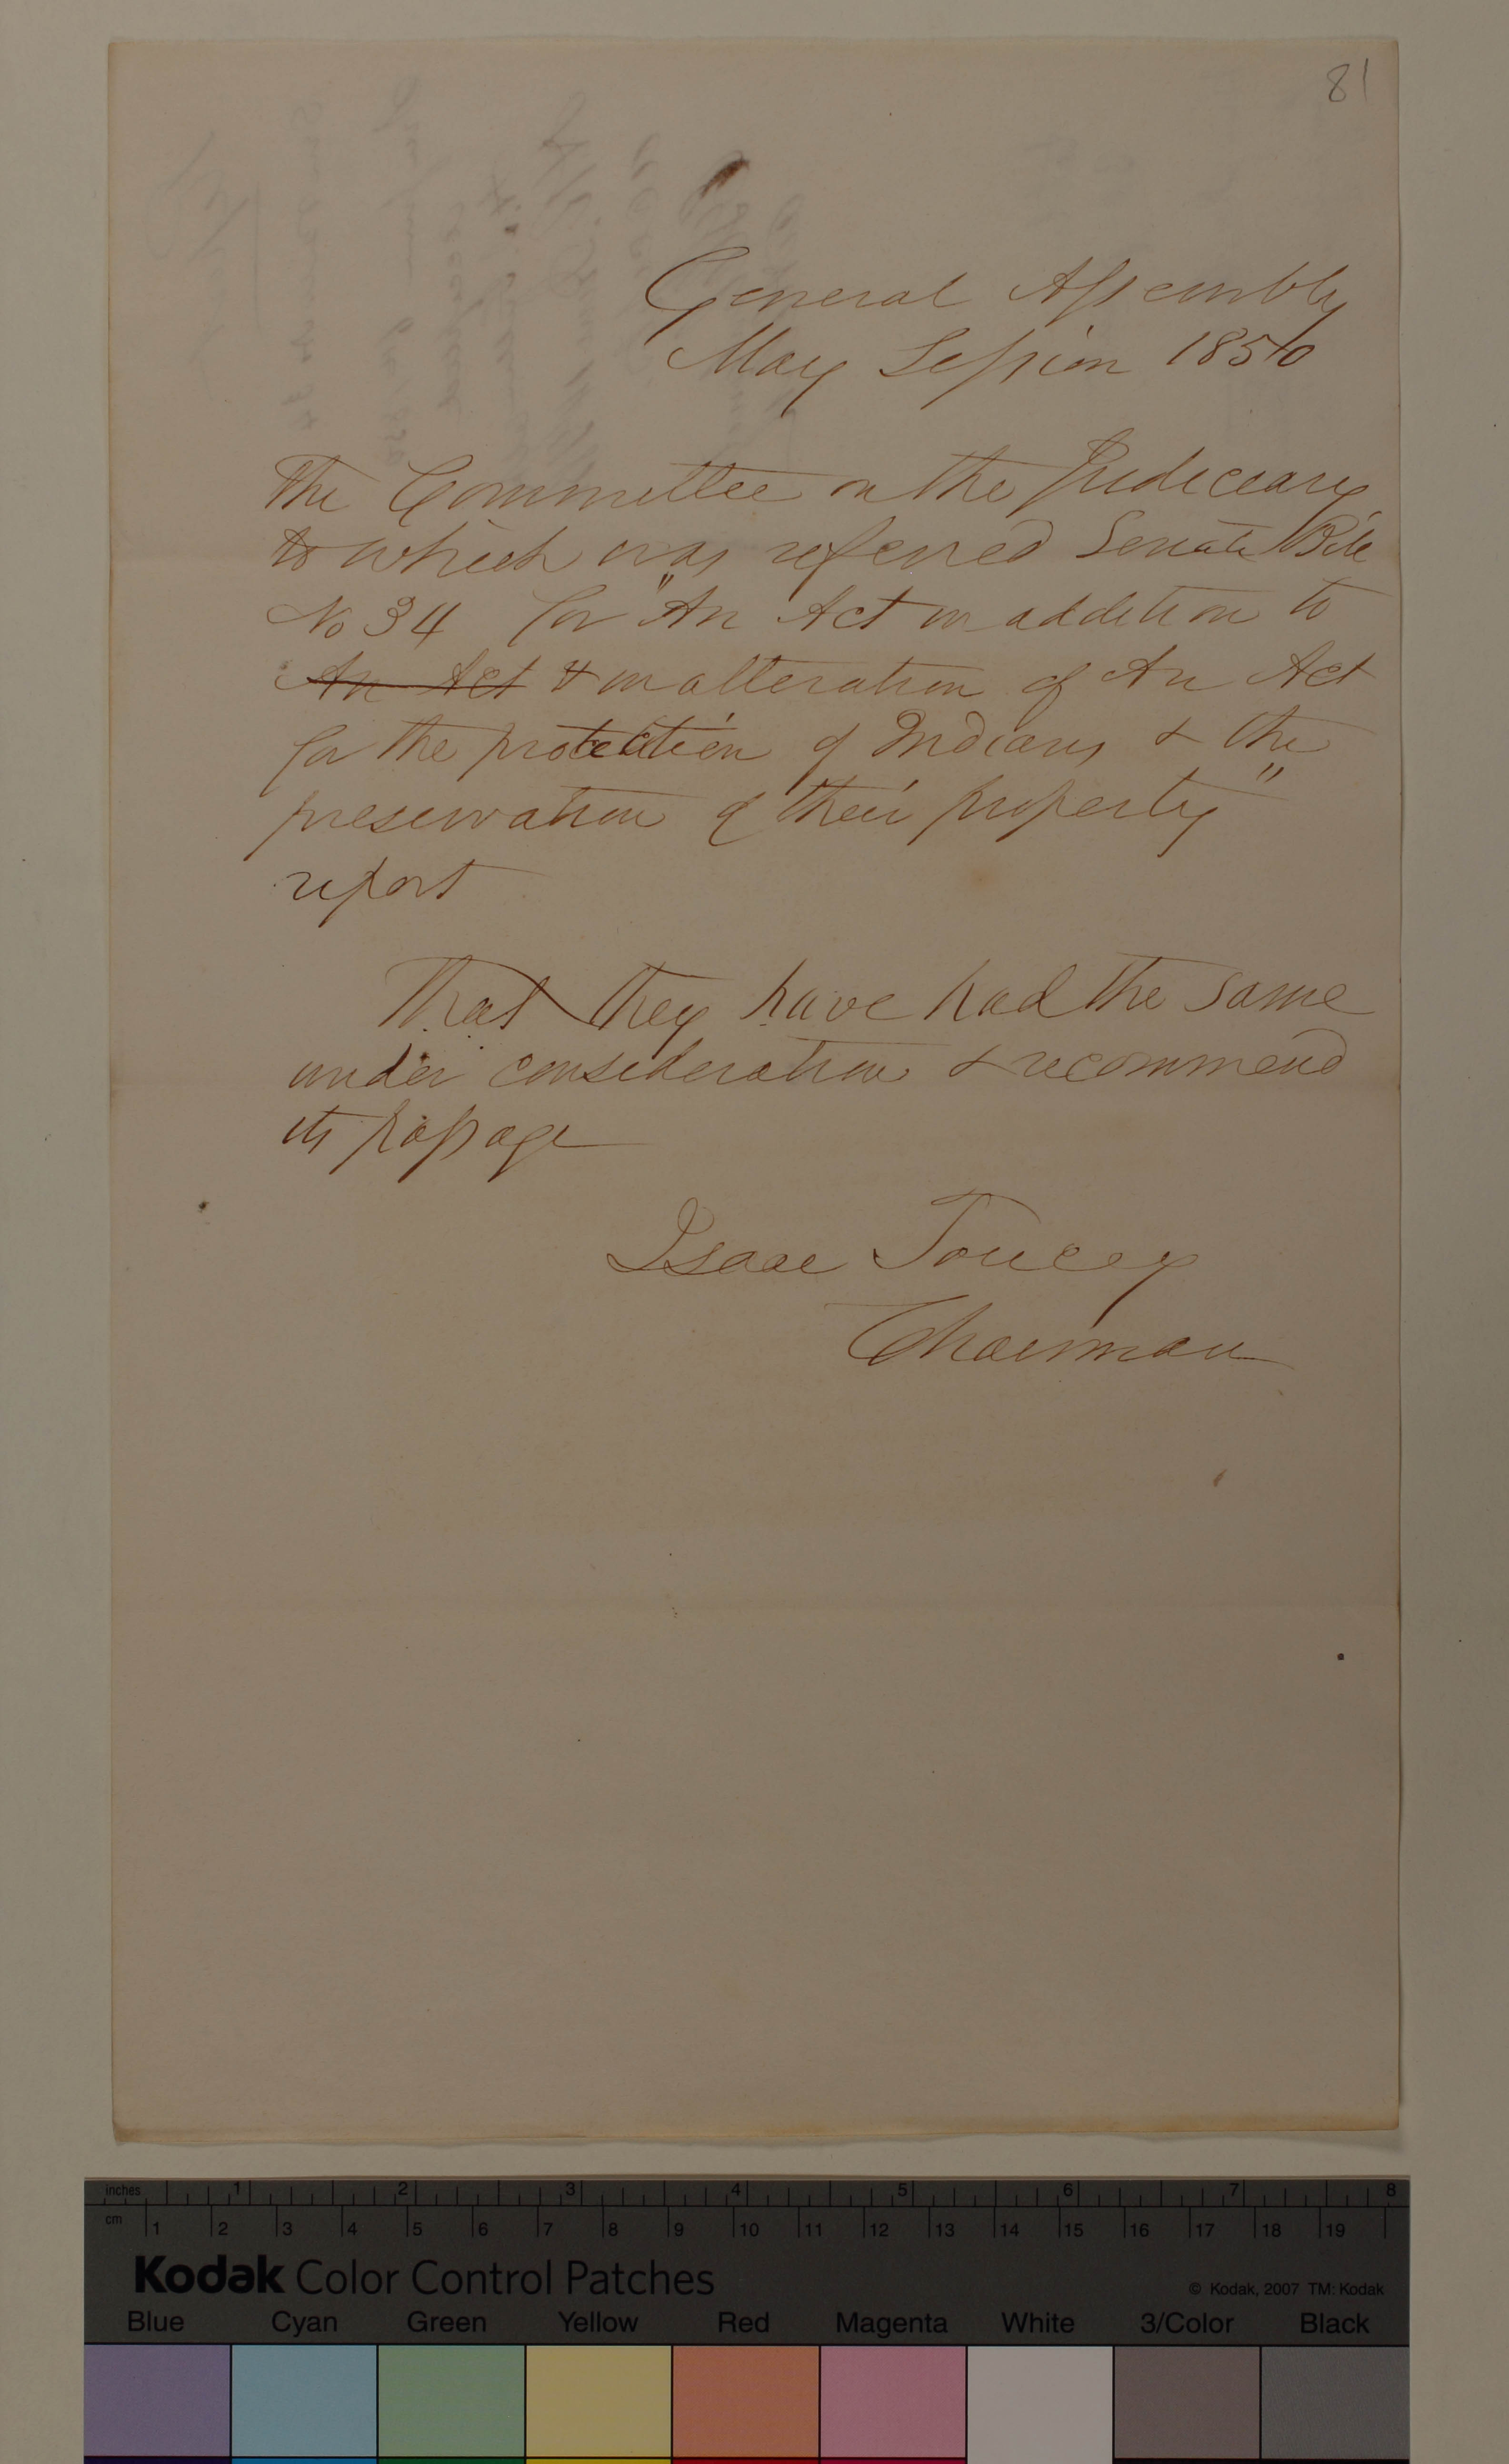 81
General Assembly
May Session 1850
The Committee on the Judiciary
to which was referred Senate Bill
No 34 for "An Act in addition to
An Act & in alteration of An Act
for the protection of Indians & the
preservation of their property"
report
That they have had the same
under consideration & recommend
its passage
Isaac Toucey
Chairman
inches 1 2 3 4 5 6 7 8
cm 1 2 3 4 5 6 7 8 9 10 11 12 13 14 15 16 17 18 19
Kodak Color Control Patches
© Kodak, 2007 TM: Kodak
Blue Cyan Green Yellow Red Magenta White 3/Color Black